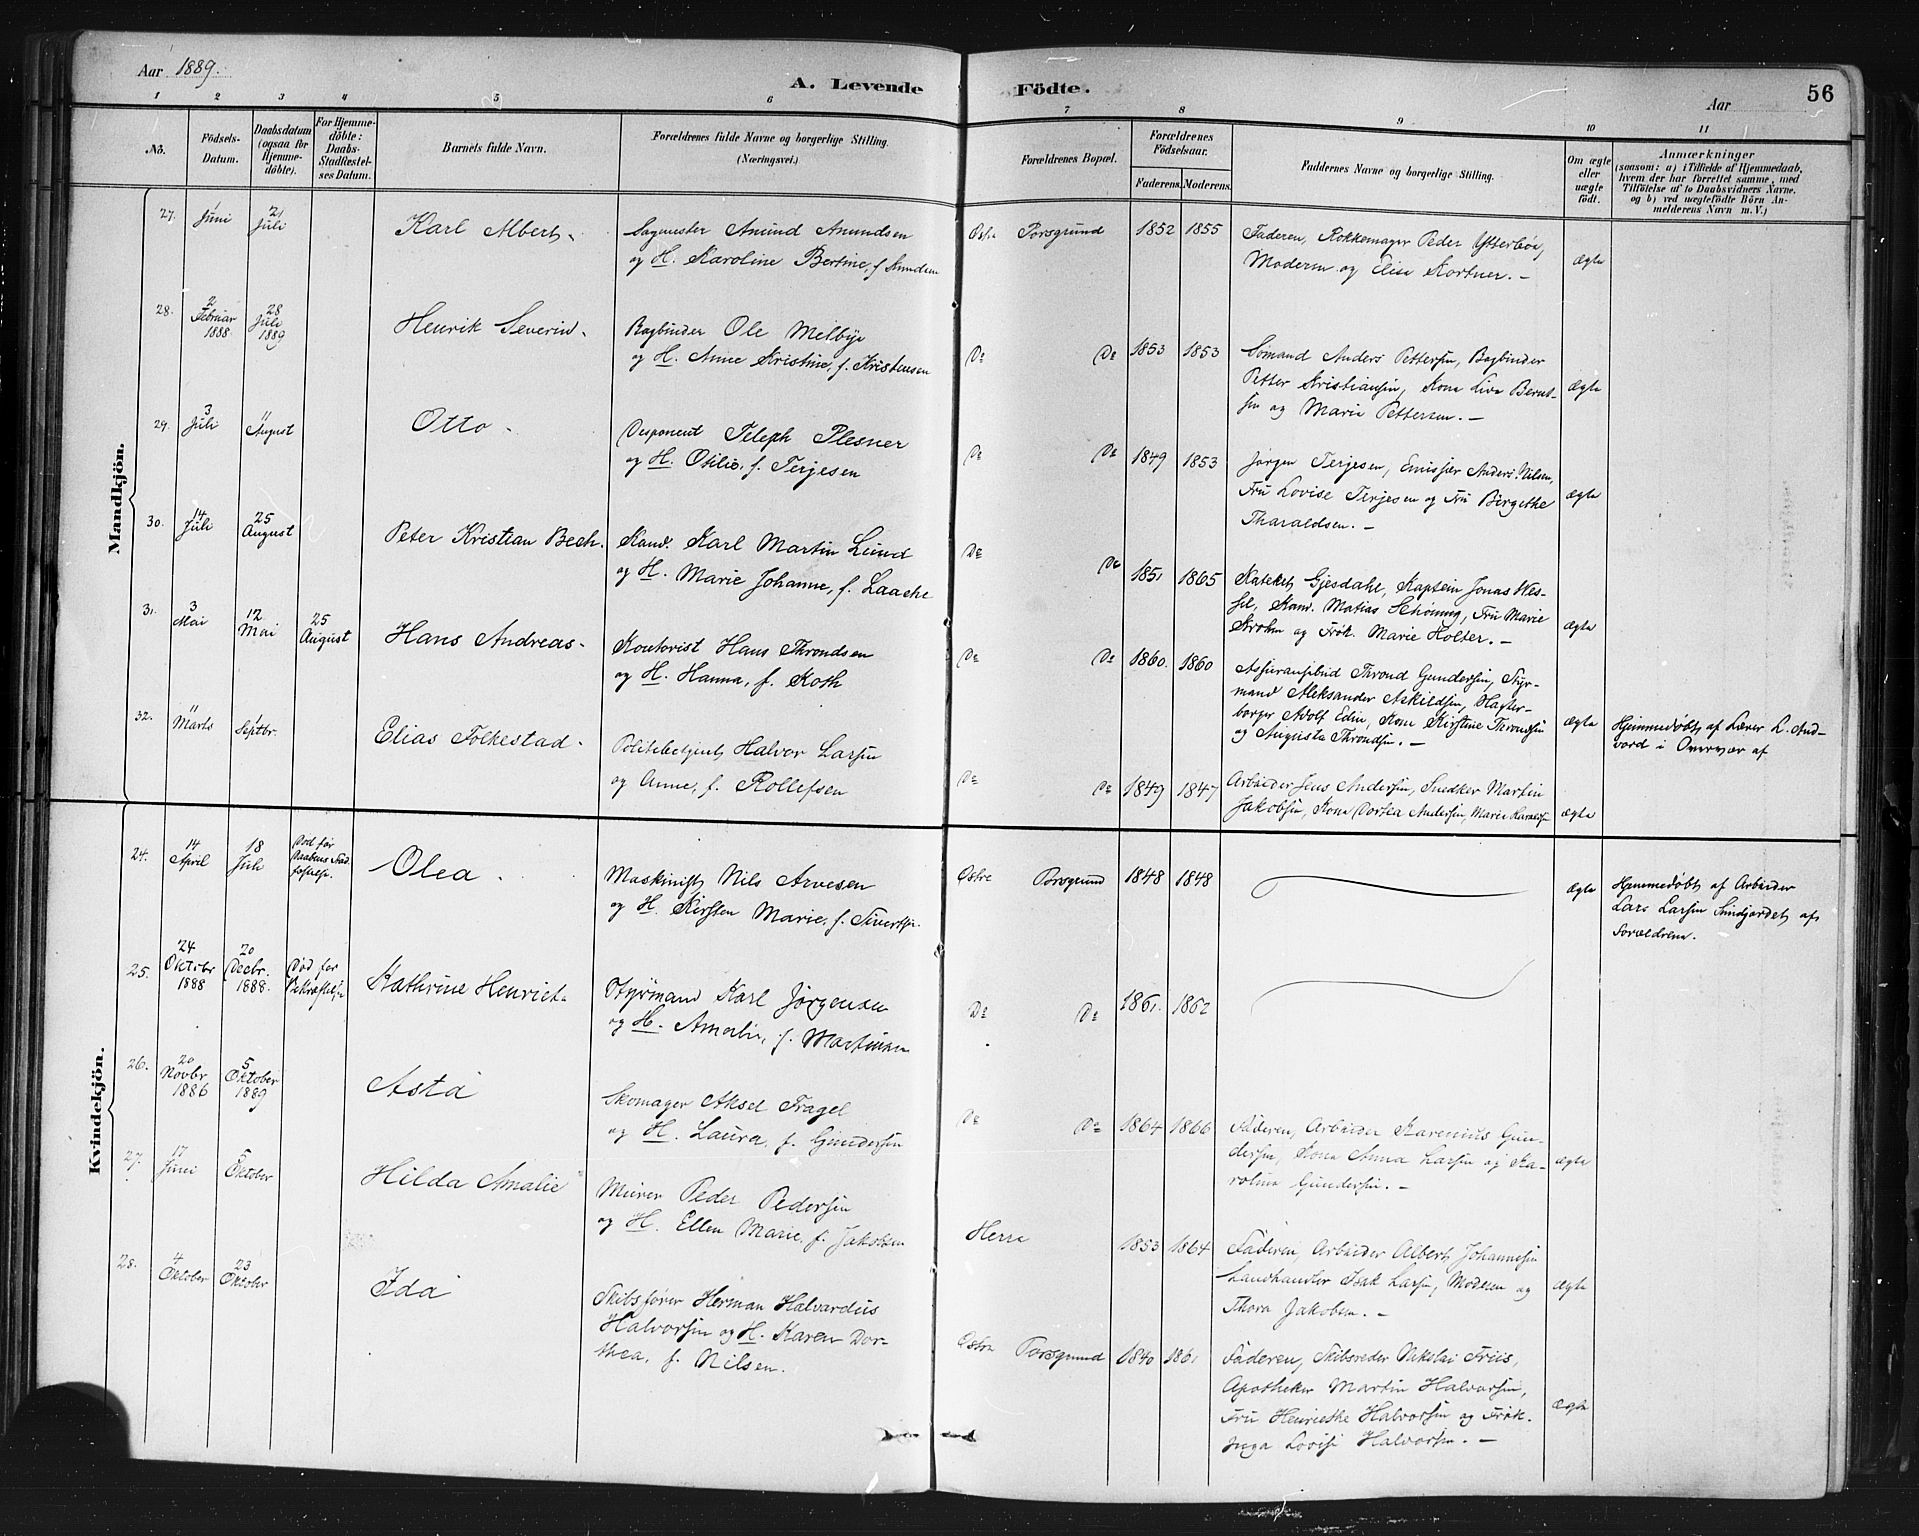 Aar 1889.
A. Levende Födte.
Aar
56
1 2 3 4 5 6 7 8 9 10 11
No.
Födsels-Datum.
Daabsdatum (ogsaa for Hjemmedöbte).
For Hjemmedöbte: Daabs-Stadfæstelses Datum.
Barnets fulde Navn.
Forældrenes fulde Navne og borgerlige Stilling. (Næringsvei.)
Forældrenes Bopæl.
Forældrenes Födselsaar.
Faderens. Moderens.
Faddernes Navne og borgerlige Stilling.
Om ægte eller uægte födt.
Anmærkninger
(saasom: a) i Tilfælde af Hjemmedaab,
hvem der har forrettet samme, med
Tilföielse af to Daabsvidners Navne,
og b) ved uægtefödte Börn An-
melderens Navn m. V.)
Mandkjön.
27. Juni 21 Juli Karl Albert
Sagmester Amund Amundsen
og H. Karoline Bertine, f. Knudsen
Østre Porsgrund 1852 1855
Faderen, Rokkemager Peder Ytterbøe,
Moderen og Elise Kortner. —
Ægte
28. 2 Februar 1888 28 Juli 1889 Henrik Severin
Bogbinder Ole Melbye
og H. Anne Kristine, f. Kristensen
Do Do 1853 1853
Sømand Anders Pettersen, Bogbinder
Petter Kristiansen, Kone Live Bernt-
sen og Maria Pettersen. —
Ægte
29. 3 Juli 11 August Otto
Disponent Teleph Plesner
og H. Otilie, f. Terjesen
Do Do 1849 1853
Jørgen Terjesen, Anders Nilsen,
Fru Lovise Terjesen og Fru Bergithe
Tharaldsen. —
ægte
30. 14 Juli 25 August Peter Kristian Bech
Kand. Karl Martin Lund
og H. Marie Johanne, f. Laache
Do Do 1851 1865
Kateket Gjesdahl, Kaptein Jonas Wes-
sel, Kand. Matias Schøning, Fru Marie
Strohm og Frøk. Marie Holter. —
ægte
31. 3 Mai 12 Mai 25 August Hans Andreas
Kontorist Hans Throndsen
og H. Hanna, f. Roth
Do Do 1860. 1860
Throud Gundersen, Styr-
mand Aleksander Askildsen,
Adolf Edin, Kone Kirstine Throndsen
og Augusta Throndsen. —
ægte
Hjemmedøbt af Lærer L. And-
vord i Overvær af
32. 11 Marts 1 Septbr. Elias Folkestad
Politibetjent Halvor Larsen
og Anne, f. Rollefsen
Do Do 1849 1847
Arbeider Jens Andersen, Snedker Martin
Jakobsen, Kone Dortea Andersen, Marie
ægte
Kvindekjön.
24. 14 April 18 Juli Død før Daabens Stadfæstelse Olea
Maskinist Nils Arvesen
og H. Kirsten Marie, f. Sivertsen
Østre Porsgrund 1848 1848
ægte
Hjemmedøbt af Arbeider
Lars Larsen af
Forældrene.
25. 24 Oktobr 1888 20 Decbr. 1888. Død før Bekræftelse Kathrine Henriete
Styrmand Karl Jørgensen
og H. Amalie, f. Martinsen
Do Do 1861. 1862
26. 20 Novbr 1886 5 Oktober 1889 Asta
Skomager Aksel Fragel
og H. Laura, f. Gundersen
Do Do 1864 1866
Faderen, Arbeider Karenius Gun-
dersen, Kone Anna Larsen og Ka-
roline Gundersen. —
ægte
27. 17 Juni 5 Oktober Hilda Amalie
Murer Peder Pedersen
og H. Ellen Marie, f. Jakobsen
Herre 1853 1864
Faderen, Arbeider Albert Johannesen
Landhandler Isak Larsen, Moderen og
Thora Jakobsen. —
ægte
28. 4 Oktober 23 Oktober Ida
Skibsfører Herman Halvardius
Halvorsen og H. Karen Dor-
thea, f. Nilsen.
Østre Porsgrund 1840 1861
Faderen, Skibsreder Nikolai Friis,
Apotheker Martin Halvorsen,
Fru Henriette Halvorsen og Frøk.
Inga Lovise Halvorsen. —
Ægte